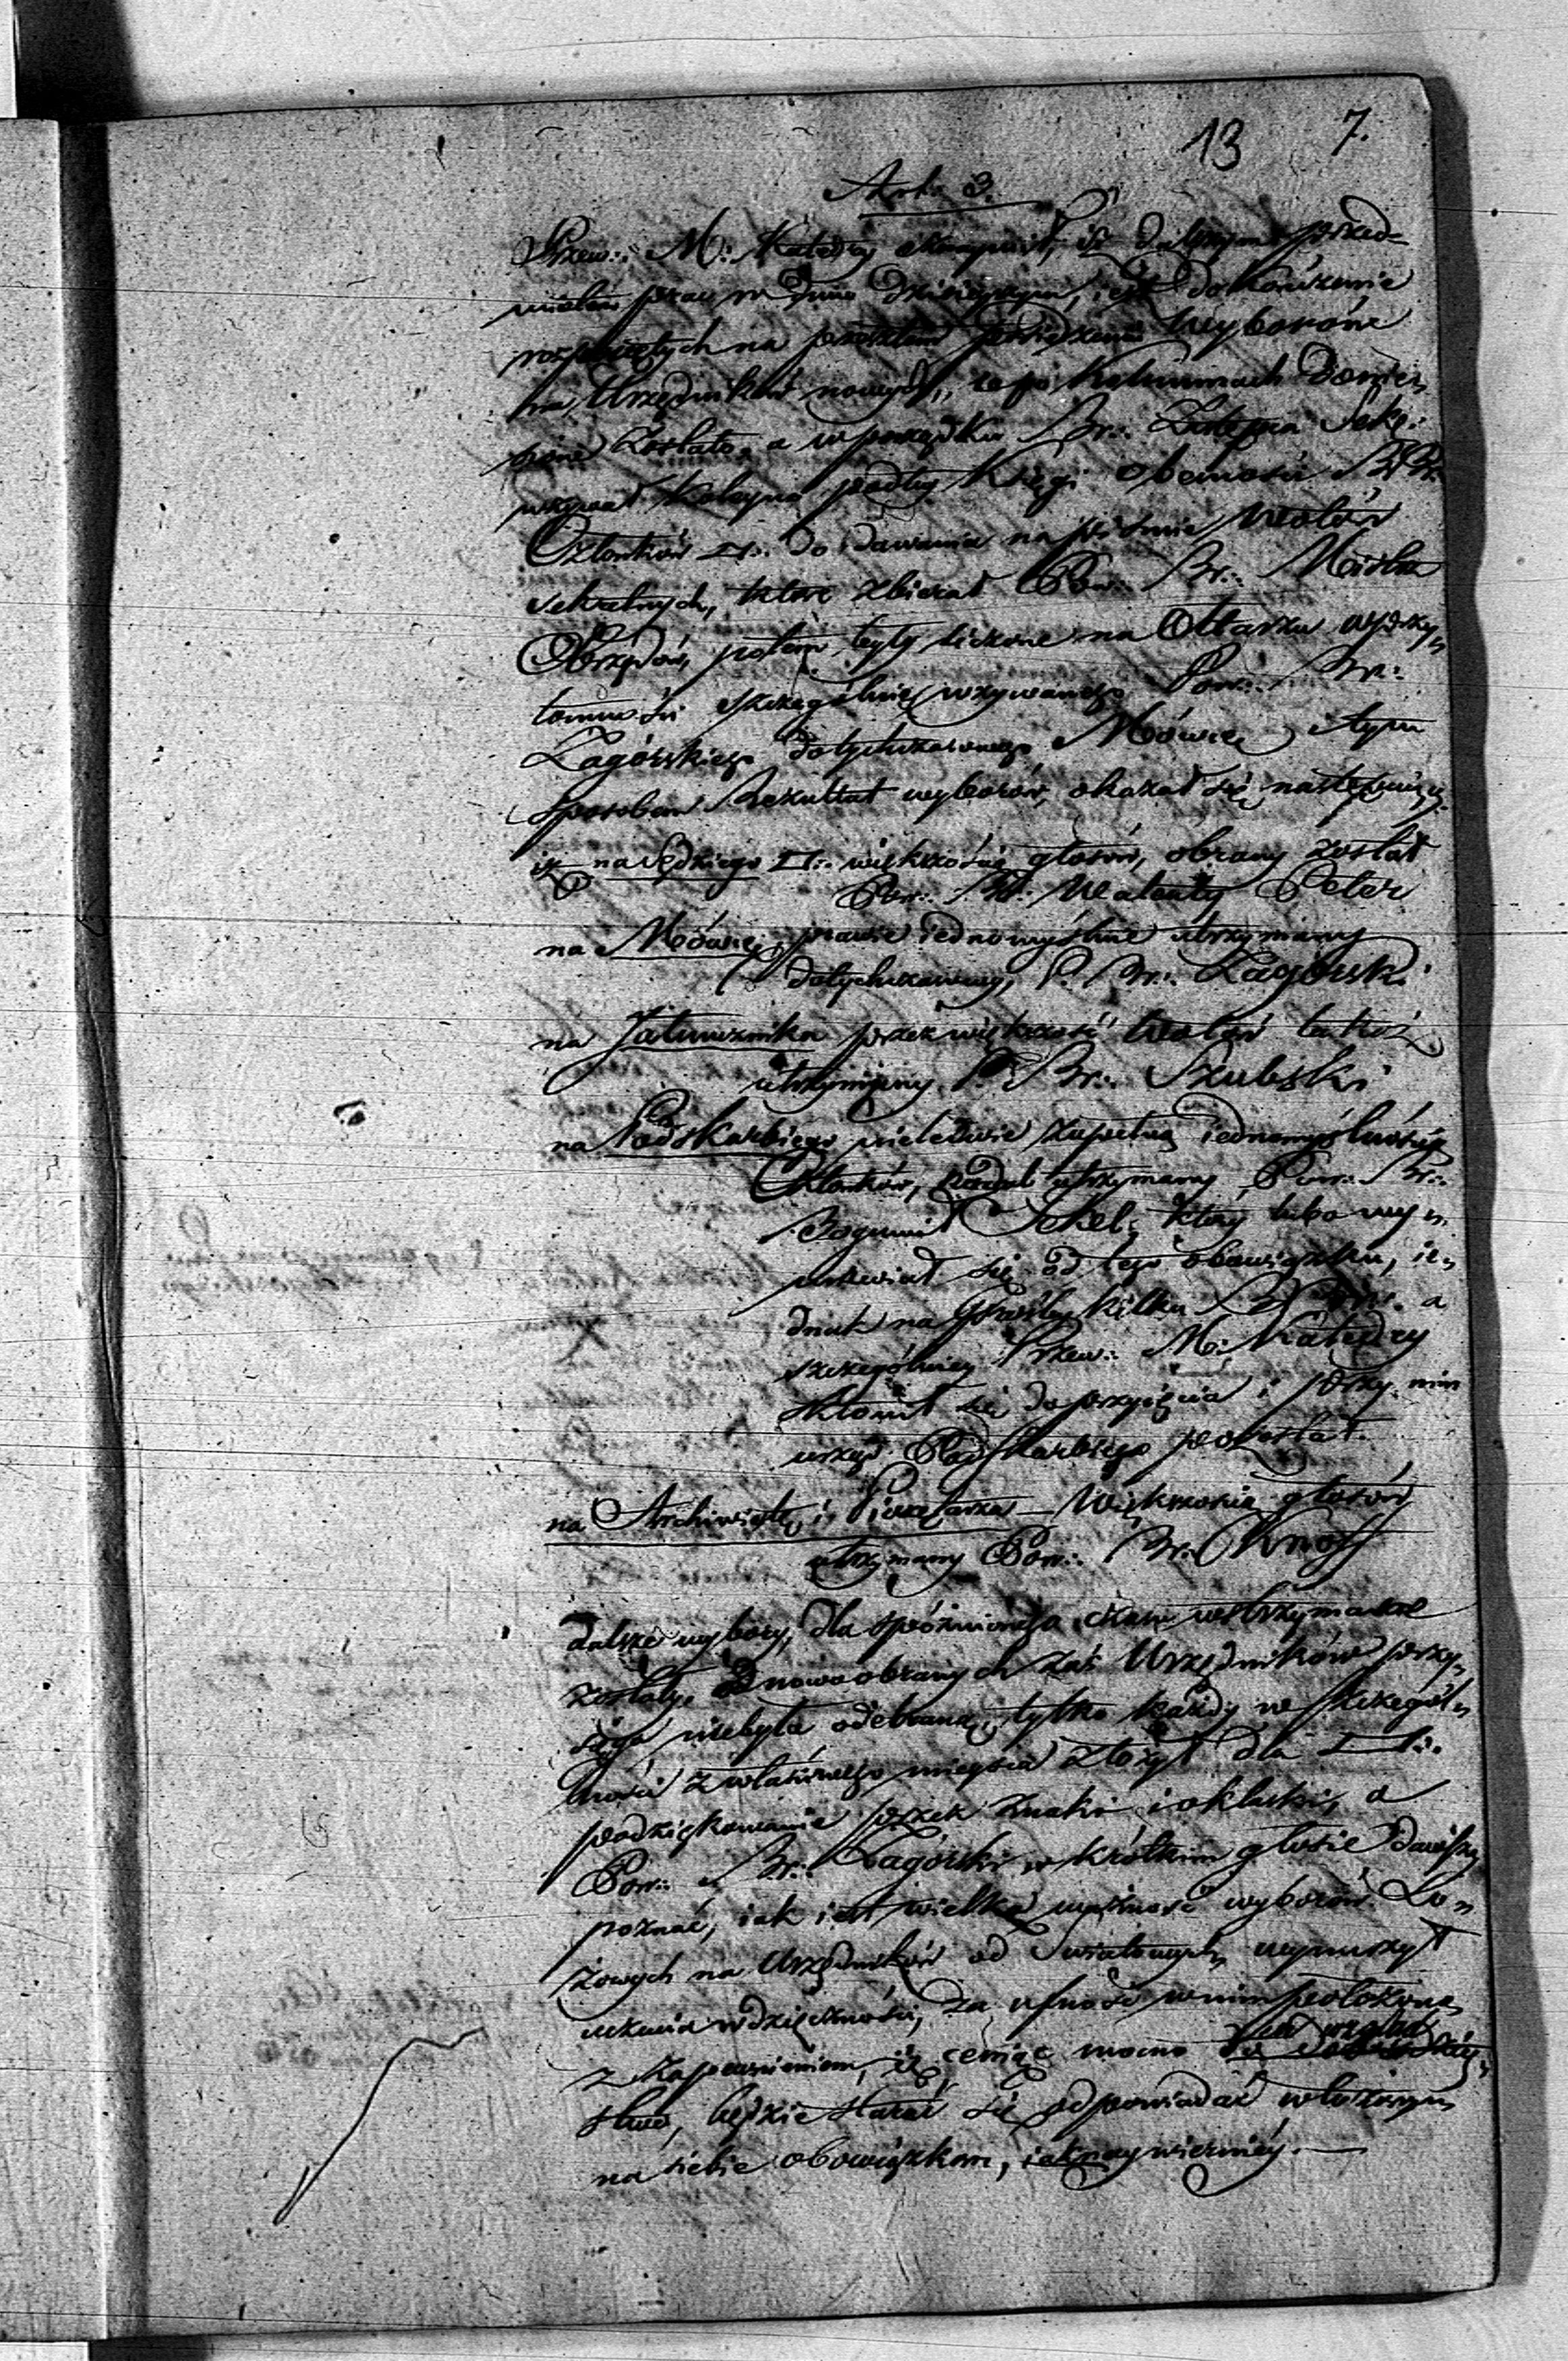 13 7.
Arto 3.
Przew:. M: Katedry oznaymił, iż dalszym przed-
miotem prac w dniu dzisieyszym, iest dokończenie
rozpoczętych na przeszłem posiedzeniu Wyborów
na Urzędników nowych, co po Kolumnach donie-
sione zostało, a w porządku Br:. Zastępca Sekr:
wzywał koleyno podług Księgi obecności BBr:
Członków □:. do dawania na piśmie Wotów
sekretnych, które zbierał Pow:. Br:. Mistrz
Obrzędów, potem były liczone na Ołtarzu w przy-
tomności szczególnie wzywanego Pow:. Br:.
Zagórskiego dotychczasowego Mówcę, i tym
sposobem Rezultat wyborów, okazał się następuiący
iż na Sędziego □:. większością głosów, obrany został
Pow:. Br:. Walenty Peter
na Mówcę, prawie iednomyślnie utrzymany
dotychczasowy, P. Br:. Zagórski
na Jałmużnika przez większość Wotów takoż
utrzymany P. Br:. Szubski
na Podskarbiego zupełną iednomyślnością
Członków, utrzymany Pow:. Br:.
Bogumił Tekel, który lubo wy-
mawiał się od tego obowiązku, ie-
dnak na prośby kilku BBr:. a
szczególniey Przew:. M: Katedry
skłonił się do przyięcia i przy nim
urząd Podskarbiego pozostał.
na Archiwistę, i Pieczętarza — Większością głosów
utrzymany Pow:. Br:. Knoff
dalsze wybory, dla spóźnionego czasu wstrzymane
zostały. Od nowoobranych zaś Urzędników przy-
sięga niebyła odebrana, tylko każdy w szczegól-
ności z właściwego mieysca złożył dla □:.
podziękowanie przez znaki i oklaski, a
Pow:. Br:. Zagórski w krótkim głosie dawszy
poznać, iak iest wielka ważność wyborów Lo-
żowych na Urzędników od Swiatowych, wynurzył
uczucia wdzięczności, za ufność w nim położoną
z zapewnieniem, iż ceniąc mocno względ
stwo, będzie starał się odpowiadać włożonym
na siebie obowiązkom, iaknaywierniéy. —